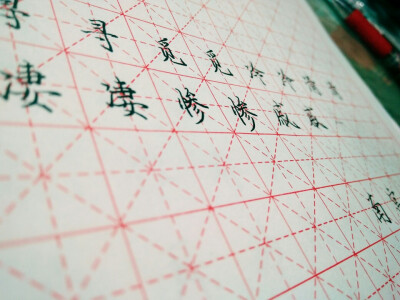 寻寻觅觅冷冷清清
凄凄惨惨戚戚
南